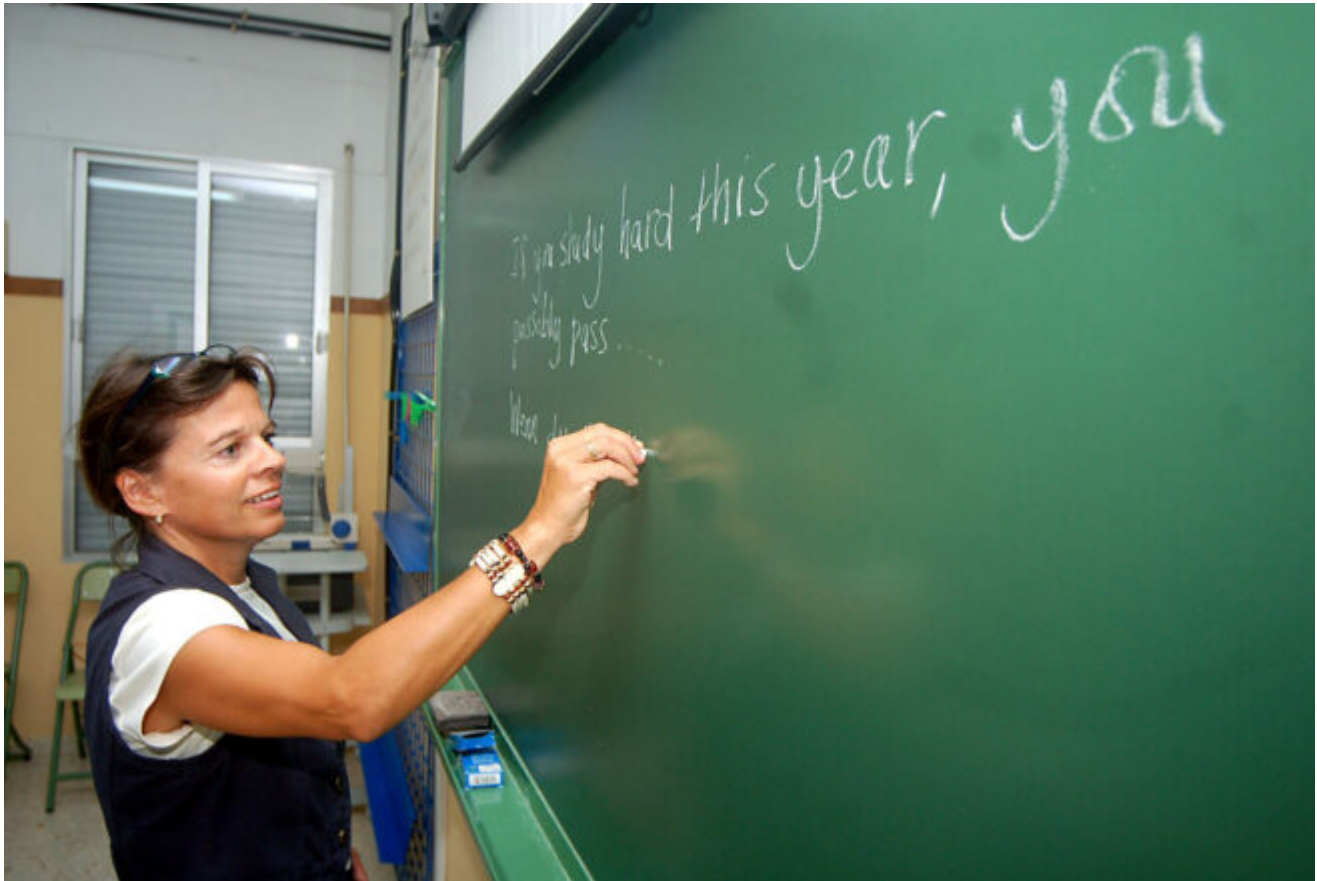 If you study hard this year, you
possibly pass.....